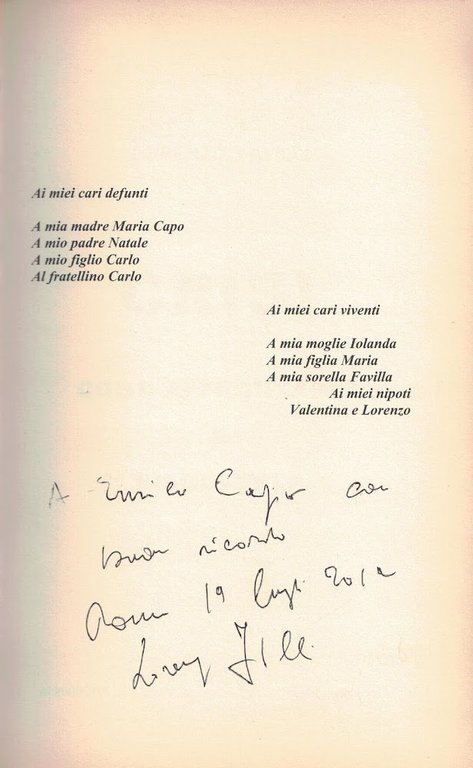 Ai miei cari defunti
A mia madre Maria Capo
A mio padre Natale
A mio figlio Carlo
Al fratellino Carlo
Ai miei cari viventi
A mia moglie Iolanda
A mia figlia Maria
A mia sorella Favilla
Ai miei nipoti
Valentina e Lorenzo
A Enrico Capo con
buon ricordo
Roma 19 luglio 2012